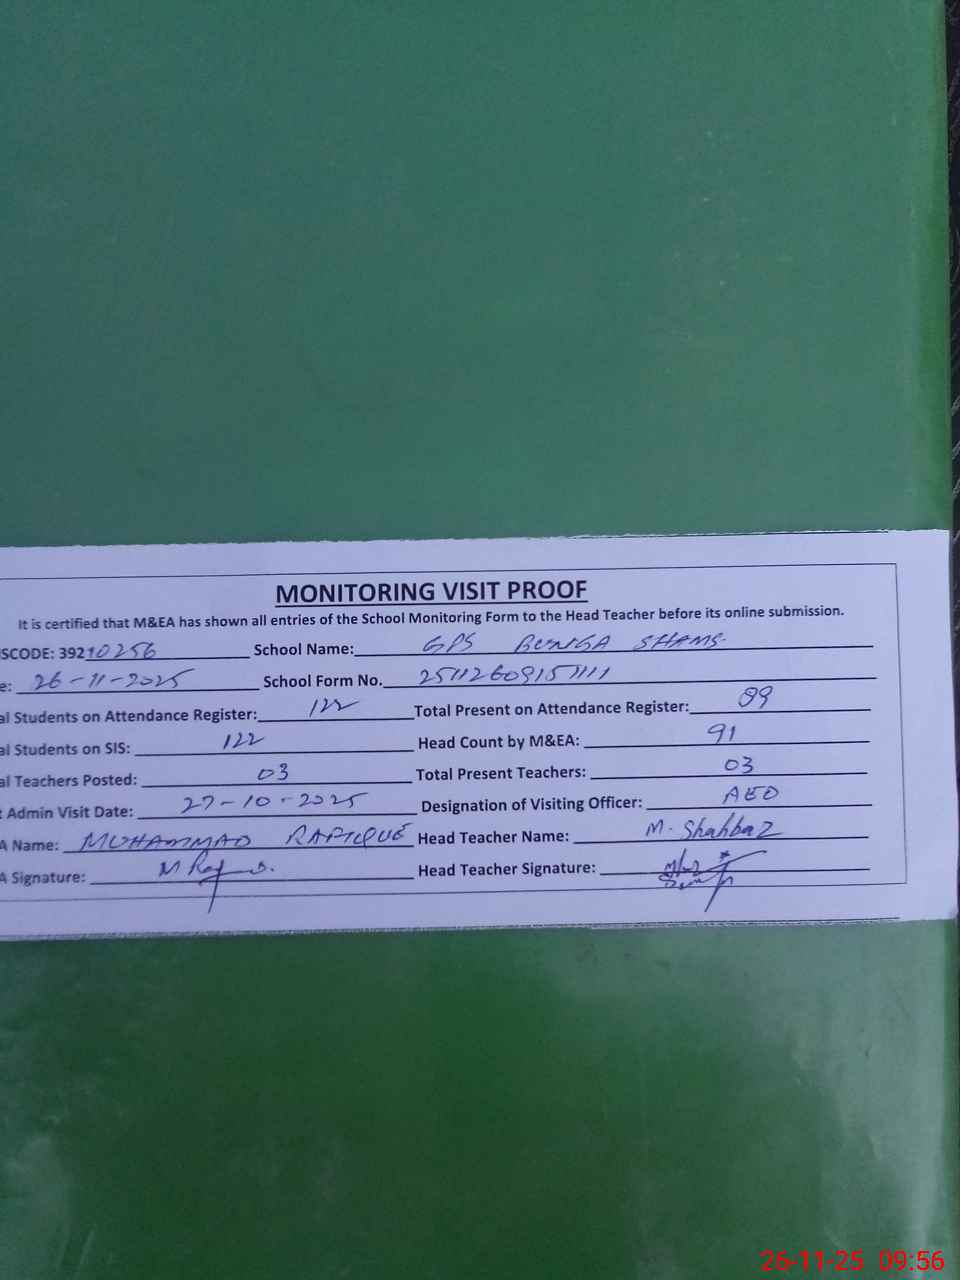 MONITORING VISIT PROOF
It is certified that M&EA has shown all entries of the School Monitoring Form to the Head Teacher before its online submission.
SCODE: 39210256 School Name: GPS BUNGA SHAMS
e: 26-11-2025 School Form No. 25112609151111
al Students on Attendance Register: 122 Total Present on Attendance Register: 89
al Students on SIS: 122 Head Count by M&EA: 91
al Teachers Posted: 03 Total Present Teachers: 03
t Admin Visit Date: 27-10-2025 Designation of Visiting Officer: AEO
A Name: MUHAMMAD RAFIQUE Head Teacher Name: M. Shahbaz
A Signature: Head Teacher Signature:
26-11-25 09:56